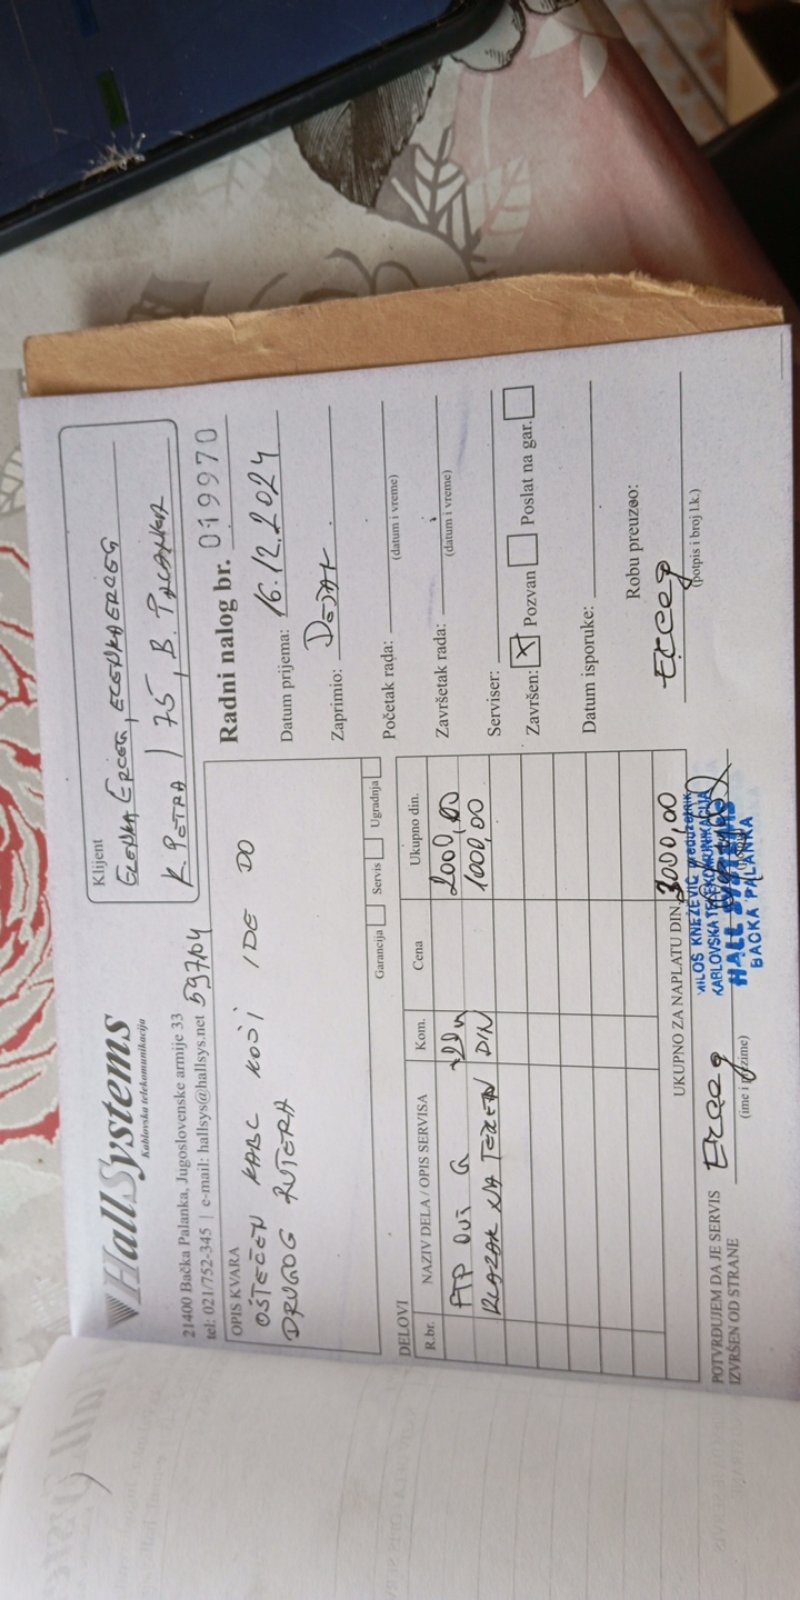 HallSystems
Kablovska telekomunikacija
21400 Bačka Palanka, Jugoslovenske armije 33
tel: 021/752-345 | e-mail: hallsys@hallsys.net
597104
Klijent
ELENKA ERCEG, ELENKAERCEG
K. PETRA I 75, B. PALANKA
OPIS KVARA
OŠTEĆEN KABL KOJI IDE DO
DRUGOG RUTERA
Garancija Servis Ugradnja
Radni nalog br. 019970
Datum prijema: 16.12.2024
Zaprimio: DEJAN
Početak rada:
(datum i vreme)
Završetak rada:
(datum i vreme)
Serviser:
Završen: X Pozvan Poslat na gar.
Datum isporuke:
Robu preuzeo:
Erceg
(potpis i broj l.k.)
DELOVI
R.br. NAZIV DELA / OPIS SERVISA Kom. Cena Ukupno din.
FTP 2000,00
IZLAZAK NA TEREN DIN 1000,00
UKUPNO ZA NAPLATU DIN. 3000,00
POTVRĐUJEM DA JE SERVIS
IZVRŠEN OD STRANE
Erceg
(ime i prezime)
MILOŠ KNEŽEVIĆ preduzetnik
KABLOVSKA TELEKOMUNIKACIJA
HALL SYSTEMS
BAČKA PALANKA